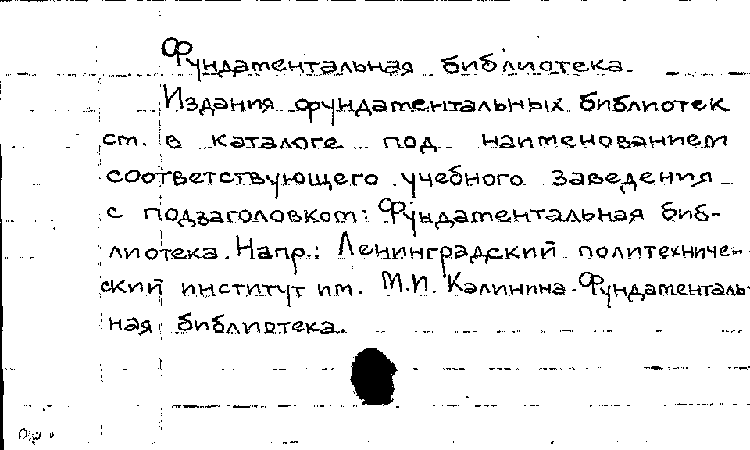 Фундаментальная библиотека.
Издания фундаментальных библиотек
см. в каталоге под наименованием
соответствующего учебного заведения
с подзаголовком: Фундаментальная биб-
лиотека. Напр.: Ленинградский политехничес-
ский институт им. М.И. Калинина. Фундаменталь-
ная библиотека.